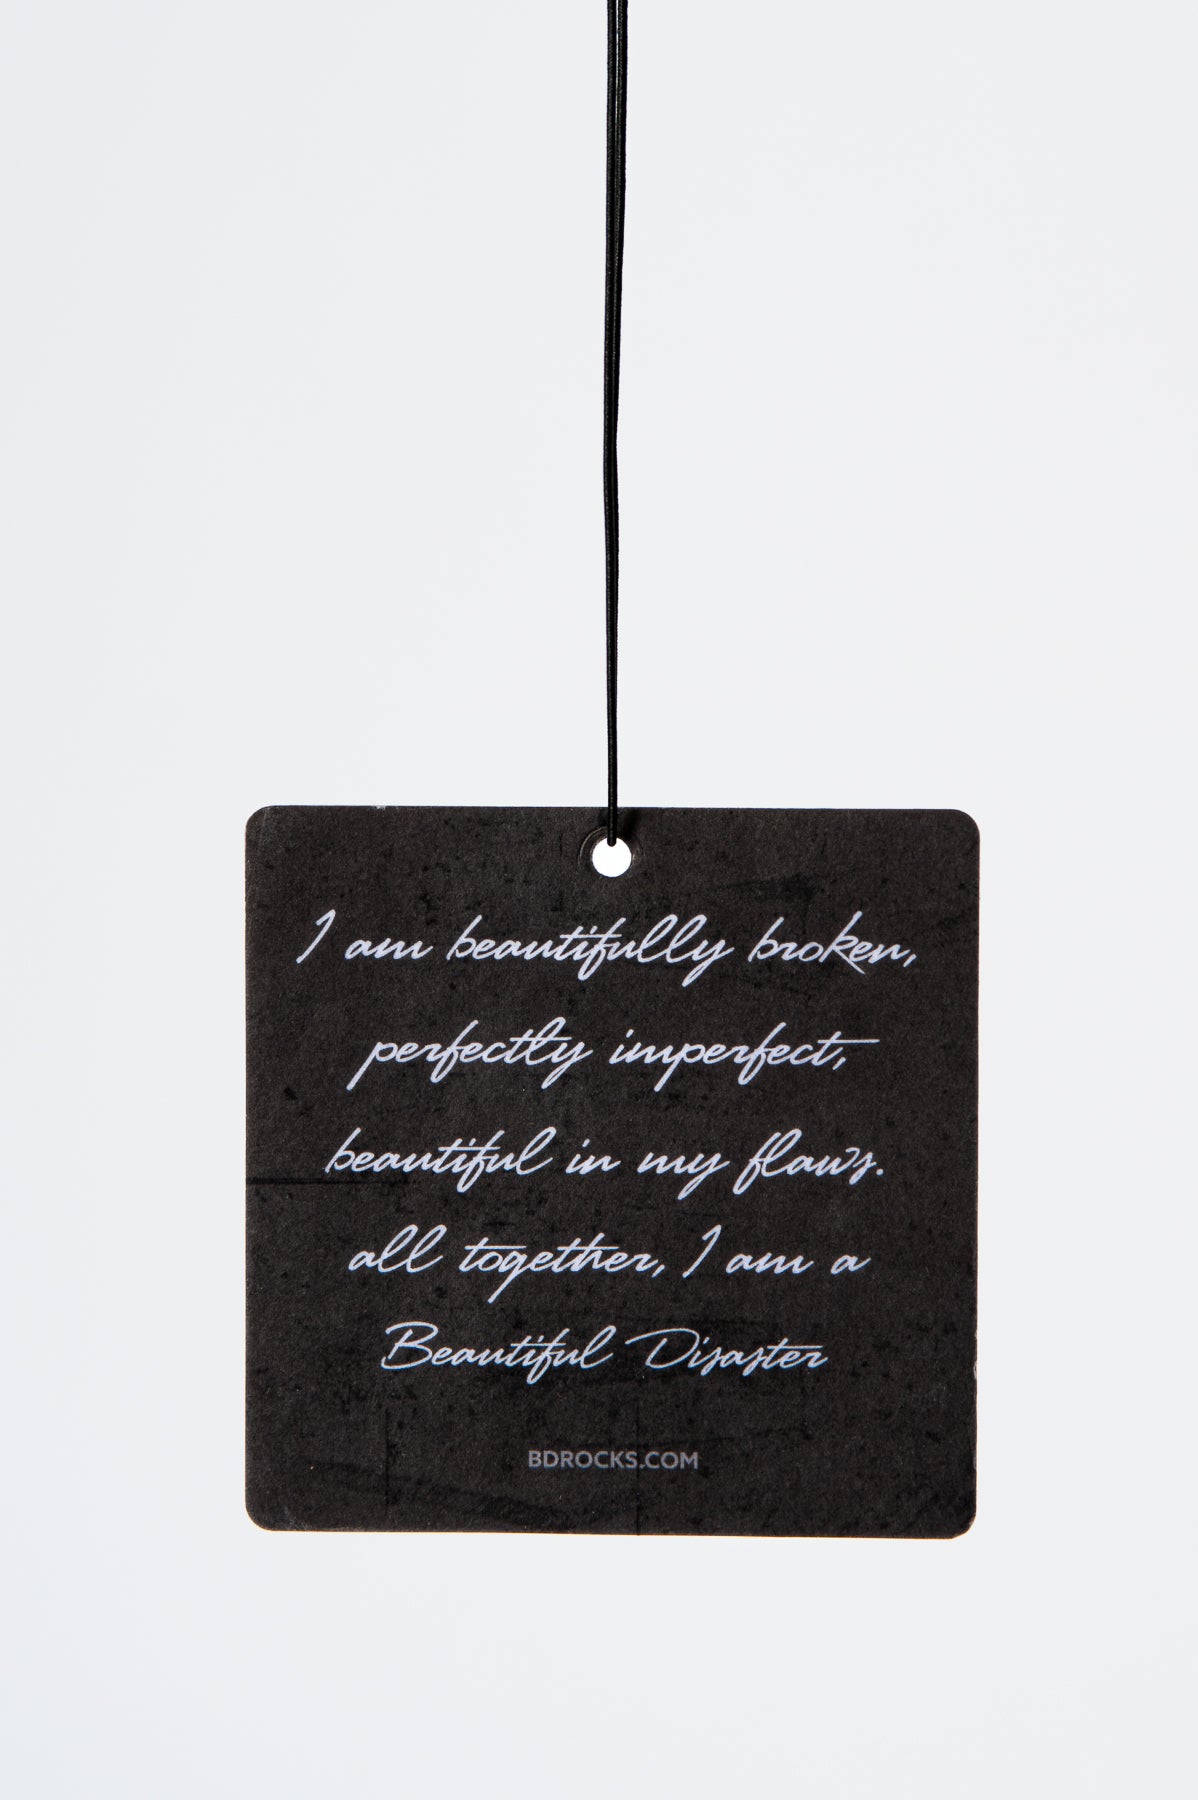 I am beautifully broken,
perfectly imperfect,
beautiful in my flaws.
all together, I am a
Beautiful Disaster
BDROCKS.COM